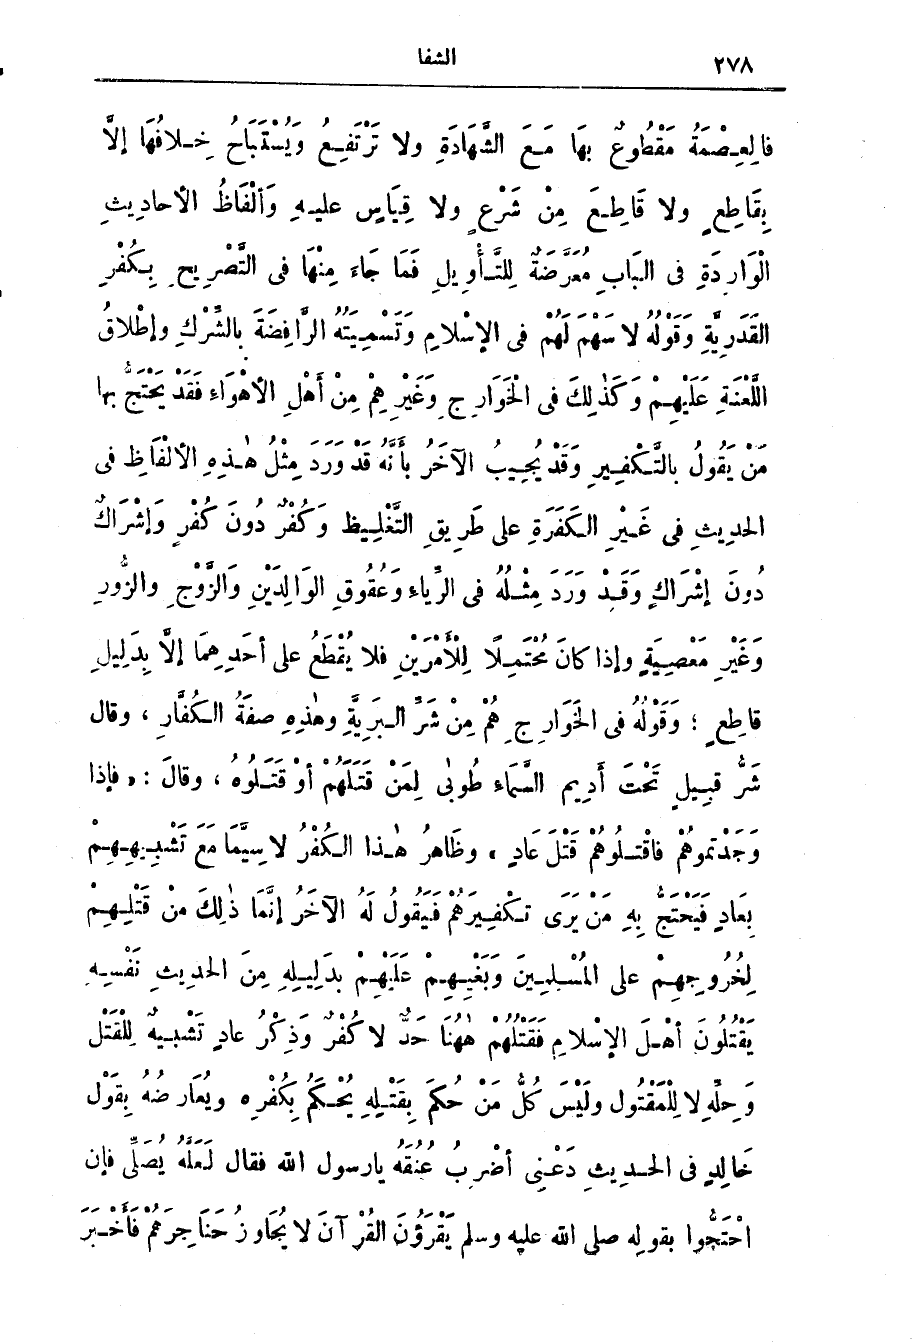 ٢٧٨
الشفا
فالِعِصْمَةُ مَقْطُوعٌ بِهَا مَعَ الشَّهَادَةِ ولا تَرْتَفِعُ وَيُسْتَبَاحُ خِلافُهَا إلَّا
بِقَاطِعٍ ولا قَاطِعَ مِنْ شَرْعٍ ولا قِيَاسٍ عليهِ وَألْفَاظُ الأحاديثِ
الْوَارِدَةِ فى البَابِ مُعَرَّضَةٌ لِلتَّأْوِيلِ فَمَا جَاءَ مِنْهَا فى التَّصْرِيحِ بِكُفْرِ
القَدَرِيَّةِ وَقَوْلُهُ لا سَهْمَ لَهُمْ فى الإسْلامِ وَتَسْمِيَتُهُ الرَّافِضَةَ بالشِّرْكِ وإطْلاقُ
اللَّعْنَةِ عَلَيْهِمْ وَكَذٰلِكَ فى الْخَوَارِجِ وَغَيْرِهِمْ مِنْ أَهْلِ الأهْوَاءِ فَقَدْ يَحْتَجُّ بها
مَنْ يَقُولُ بالتَّكْفِيرِ وَقَدْ يُجِيبُ الآخَرُ بأَنَّهُ قَدْ وَرَدَ مِثْلُ هٰذِهِ الألْفَاظِ فى
الحديثِ فى غَيْرِ الكَفَرَةِ على طَرِيقِ التَّغْلِيظِ وَكُفْرٌ دُونَ كُفْرٍ وَإشْرَاكٌ
دُونَ إشْرَاكٍ وَقَدْ وَرَدَ مِثْلُهُ فى الرِّيَاءِ وَعُقُوقِ الوَالِدَيْنِ وَالزَّوْجِ والزُّورِ
وَغَيْرِ مَعْصِيَةٍ وإذا كانَ مُحْتَمِلًا لِلْأَمْرَيْنِ فلا يُقْطَعُ على أحَدِهِمَا إلَّا بِدَلِيلٍ
قاطِعٍ ؛ وَقَوْلُهُ فى الخَوَارِجِ هُمْ مِنْ شَرِّ البَرِيَّةِ وهٰذِهِ صفَةُ الكُفَّارِ ، وقال
شَرُّ قَبِيلٍ تَحْتَ أَدِيمِ السَّمَاءِ طُوبٰى لِمَنْ قَتَلَهُمْ أوْ قَتَلُوهُ ، وقالَ : « فإذا
وَجَدْتموهُمْ فاقْتلُوهُمْ قَتْلَ عَادٍ » وظَاهِرُ هٰذا الكُفْرُ لا سِيَّمَا مَعَ تَشْبِيهِهِمْ
بِعَادٍ فَيَحْتَجُّ بِهِ مَنْ يَرَى تكْفِيرَهُمْ فَيَقُولُ لَهُ الآخَرُ إنَّمَا ذٰلِكَ مِنْ قَتْلِهِمْ
لِخُرُوجِهِمْ على المُسْلِمِينَ وَبَغْيِهِمْ عَلَيْهِمْ بدَلِيلِهِ مِنَ الحديثِ نَفْسِهِ
يَقْتُلُونَ أهْلَ الإسْلامِ فَقَتْلُهُمْ هٰهُنَا حَدٌّ لا كُفْرٌ وَذِكْرُ عادٍ تَشْبِيهٌ لِلْقَتْلِ
وَحِلِّهِ لا لِلْمَقْتُولِ ولَيْسَ كُلُّ مَنْ حُكمَ بِقَتْلِهِ يُحْكَمُ بِكُفْرِهِ ويُعَارِضُهُ بِقَوْلِ
خَالِدٍ فى الحديثِ دَعْنِى أضْرِبُ عُنُقَهُ يارسول الله فقال لَعلَّهُ يُصَلِّى فإن
احْتَجُّوا بقوله صلى الله عليه وسلم يَقْرَؤُنَ القُرْآنَ لا يُجَاوِزُ حَنَاجِرَهُمْ فَأَخْبَرَ